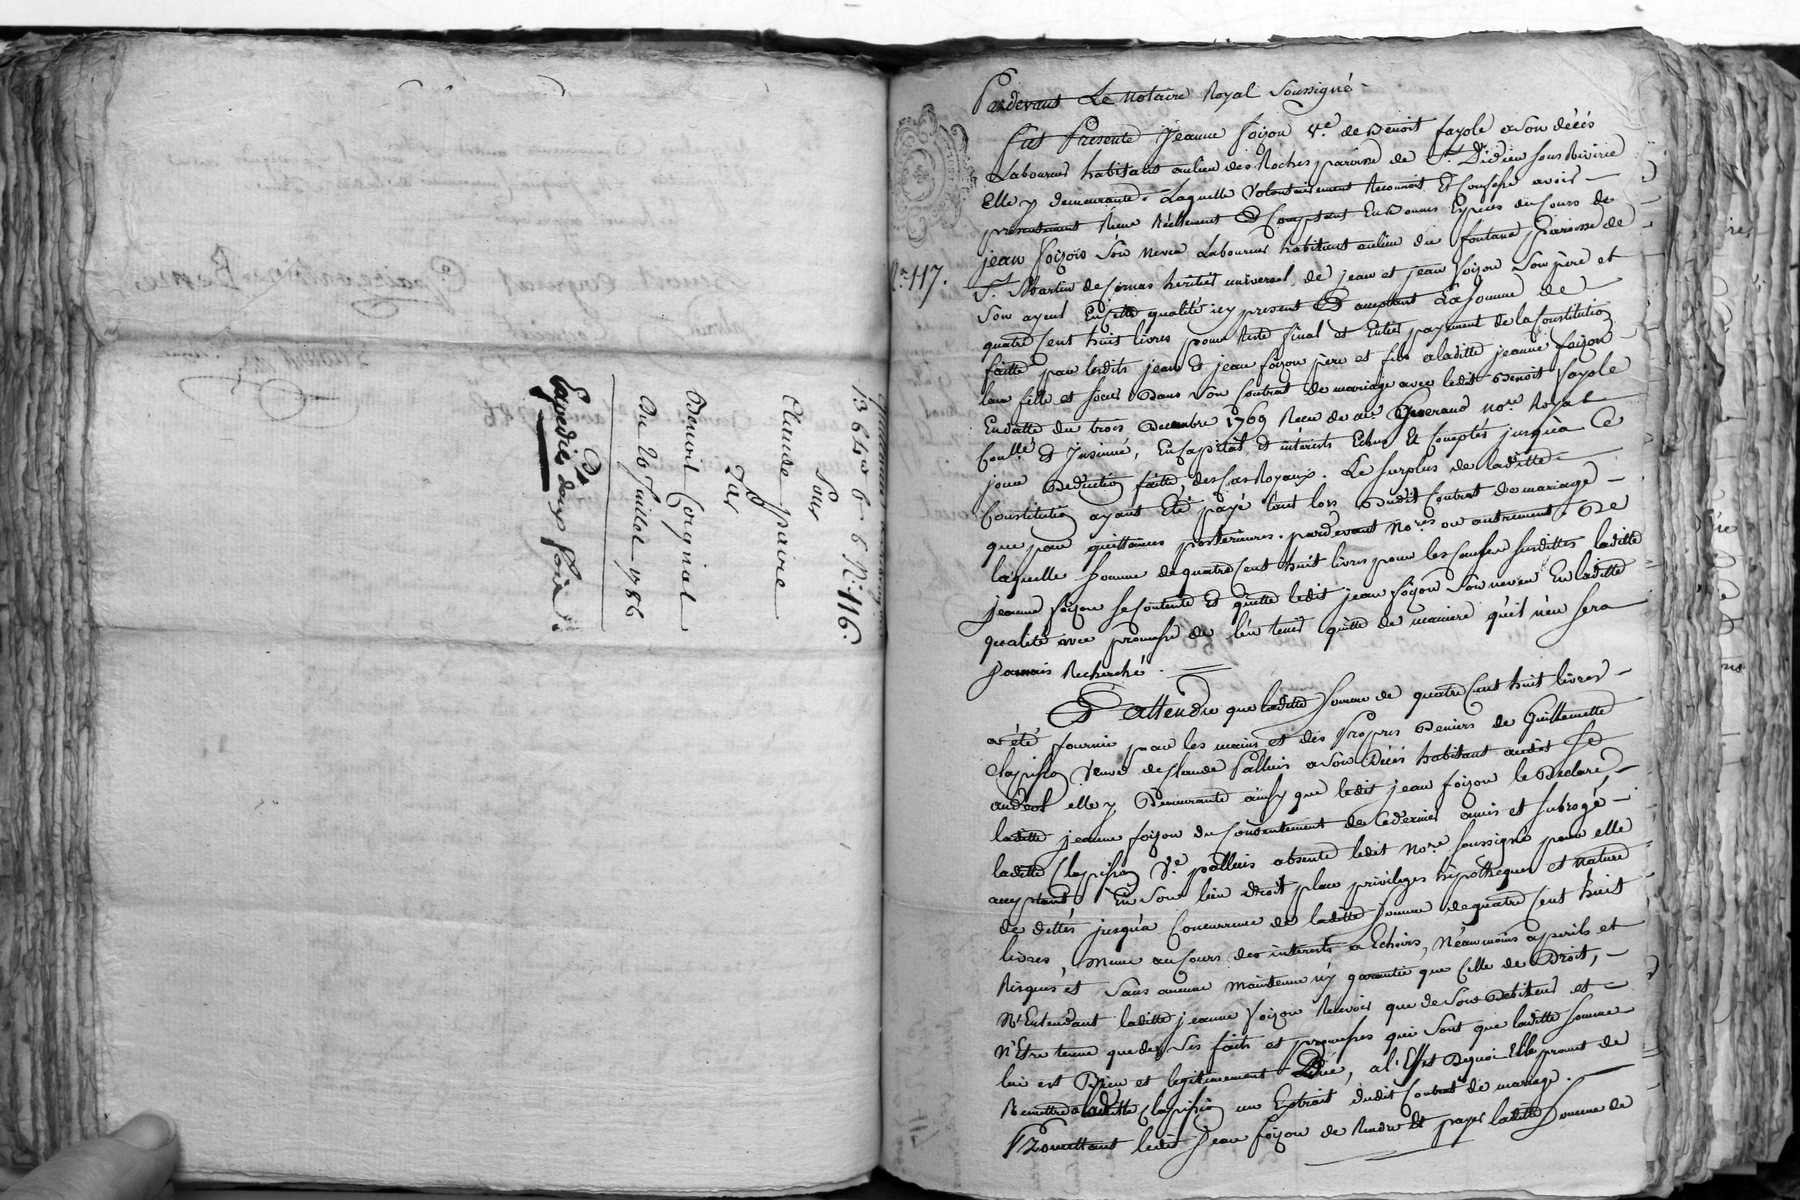 13 644 6 6 N.° 116.
Pour
Claude paire
Par
Benoit Coignat
Du 20 Juillet 1786
Expedié deux fois
N.° 117.
Pardevant Le Notaire Royal Soussigné
fut Presente Jeanne foizon V.e de Benoit fayole a son décés
Laboureur habitant au lieu des Roches paroisse de St. Didier sous Riverie
Elle y demeurante. Laquelle Volontairement Reconnoit Et Confesse avoir
presentement Recu Réellement Et Comptant En Bonnes Especes du Cours de
jean foizon Son neveu Laboureur habitant au lieu du fontane paroisse de
St. Martin de Cornas heritier universel de jean et jean foizon Son père et
Son ayeul En cette qualité icy present Et acceptant La Somme de
quatre Cent huit livres pour Reste final et Entier payement de la Constitution
faitte par lesdits jean Et jean foizon père et fils a laditte jeanne foizon
leur fille et soeur Dans Son Contrat de mariage avec ledit Benoit fayole
En datte du trois Decembre 1769 Recu de me No.re Royal
Con.lé Et Insinué, En Capital, et interests Echus Et Comptés jusqu'a Ce
jour Deduction faitte, des Cas Royaux. Le Surplus de laditte
Constitution ayant Eté payé tant lors Dudit Contrat de mariage
que par quittances posterieures. pardevant No.res ou autrement. De
laquelle Somme de quatre Cent huit livres pour les Causes Susdittes laditte
jeanne foizon Se Contente Et quitte ledit jean foizon Son neveu En laditte
qualité avec promesse de l'en tenir quitte de maniere qu'il n'en Sera
Jamais Recherché.
Et attendu que laditte Somme de quatre Cent huit livres
a été fournie par les mains et des Propres Deniers de Guillemette
Clapisson Veuve de Claude Palluis a Son Décés habitant audit St
andéol elle y Demeurante ainsy que ledit jean foizon le Declare,
laditte jeanne foizon du Consentement de Ce dernier a mis et Subrogé
laditte Clapisson V.e palluis absente ledit No.re Soussigné pour elle
acceptant En Son lieu Droit place privileges hipotheques et Nature
de dettes jusqu'a Concurrence de laditte Somme de quatre Cent huit
livres, Meme au Cours des interests a Echoirs, Néanmoins a perils et
Risques et Sans aucune Maintenue n'y garantie que Celle de Droit,
N'Entendant laditte jeanne foizon Recevoir que de Son Debiteur et
N'Etre tenue que de Ses faits et promesses qui Sont que laditte Somme
lui est Bien et legitimement Düe, a l'Effet Dequoi Elle promet de
Remettre a laditte Clapisson un Extrait dudit Contrat de mariage.
Promettant ledit Jean foizon de Rendre Et payer laditte Somme de